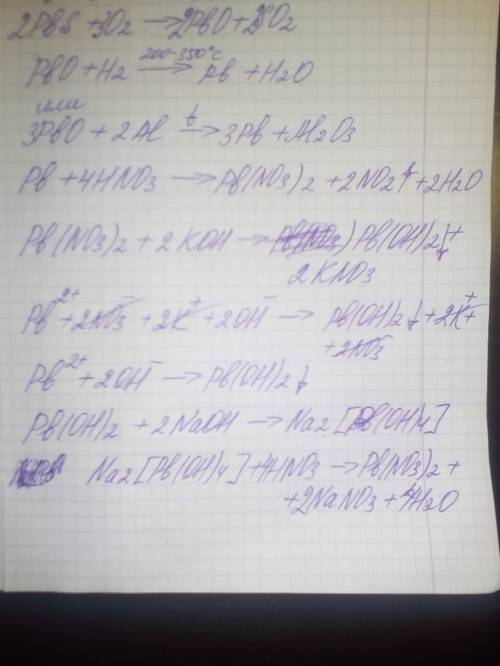 2PbS + 3O2 → 2PbO + 2SO2
PbO + H2 200-350°C → Pb + H2O
или
3PbO + 2Al t → 3Pb + Al2O3
Pb + 4HNO3 → Pb(NO3)2 + 2NO2↑ + 2H2O
Pb(NO3)2 + 2KOH → Pb(OH)2↓ +
2KNO3
Pb²⁺ + 2NO3⁻ + 2K⁺ + 2OH⁻ → Pb(OH)2↓ + 2K⁺ +
+ 2NO3⁻
Pb²⁺ + 2OH⁻ → Pb(OH)2↓
Pb(OH)2 + 2NaOH → Na2[Pb(OH)4]
Na2[Pb(OH)4] + 4HNO3 → Pb(NO3)2 +
+ 2NaNO3 + 4H2O